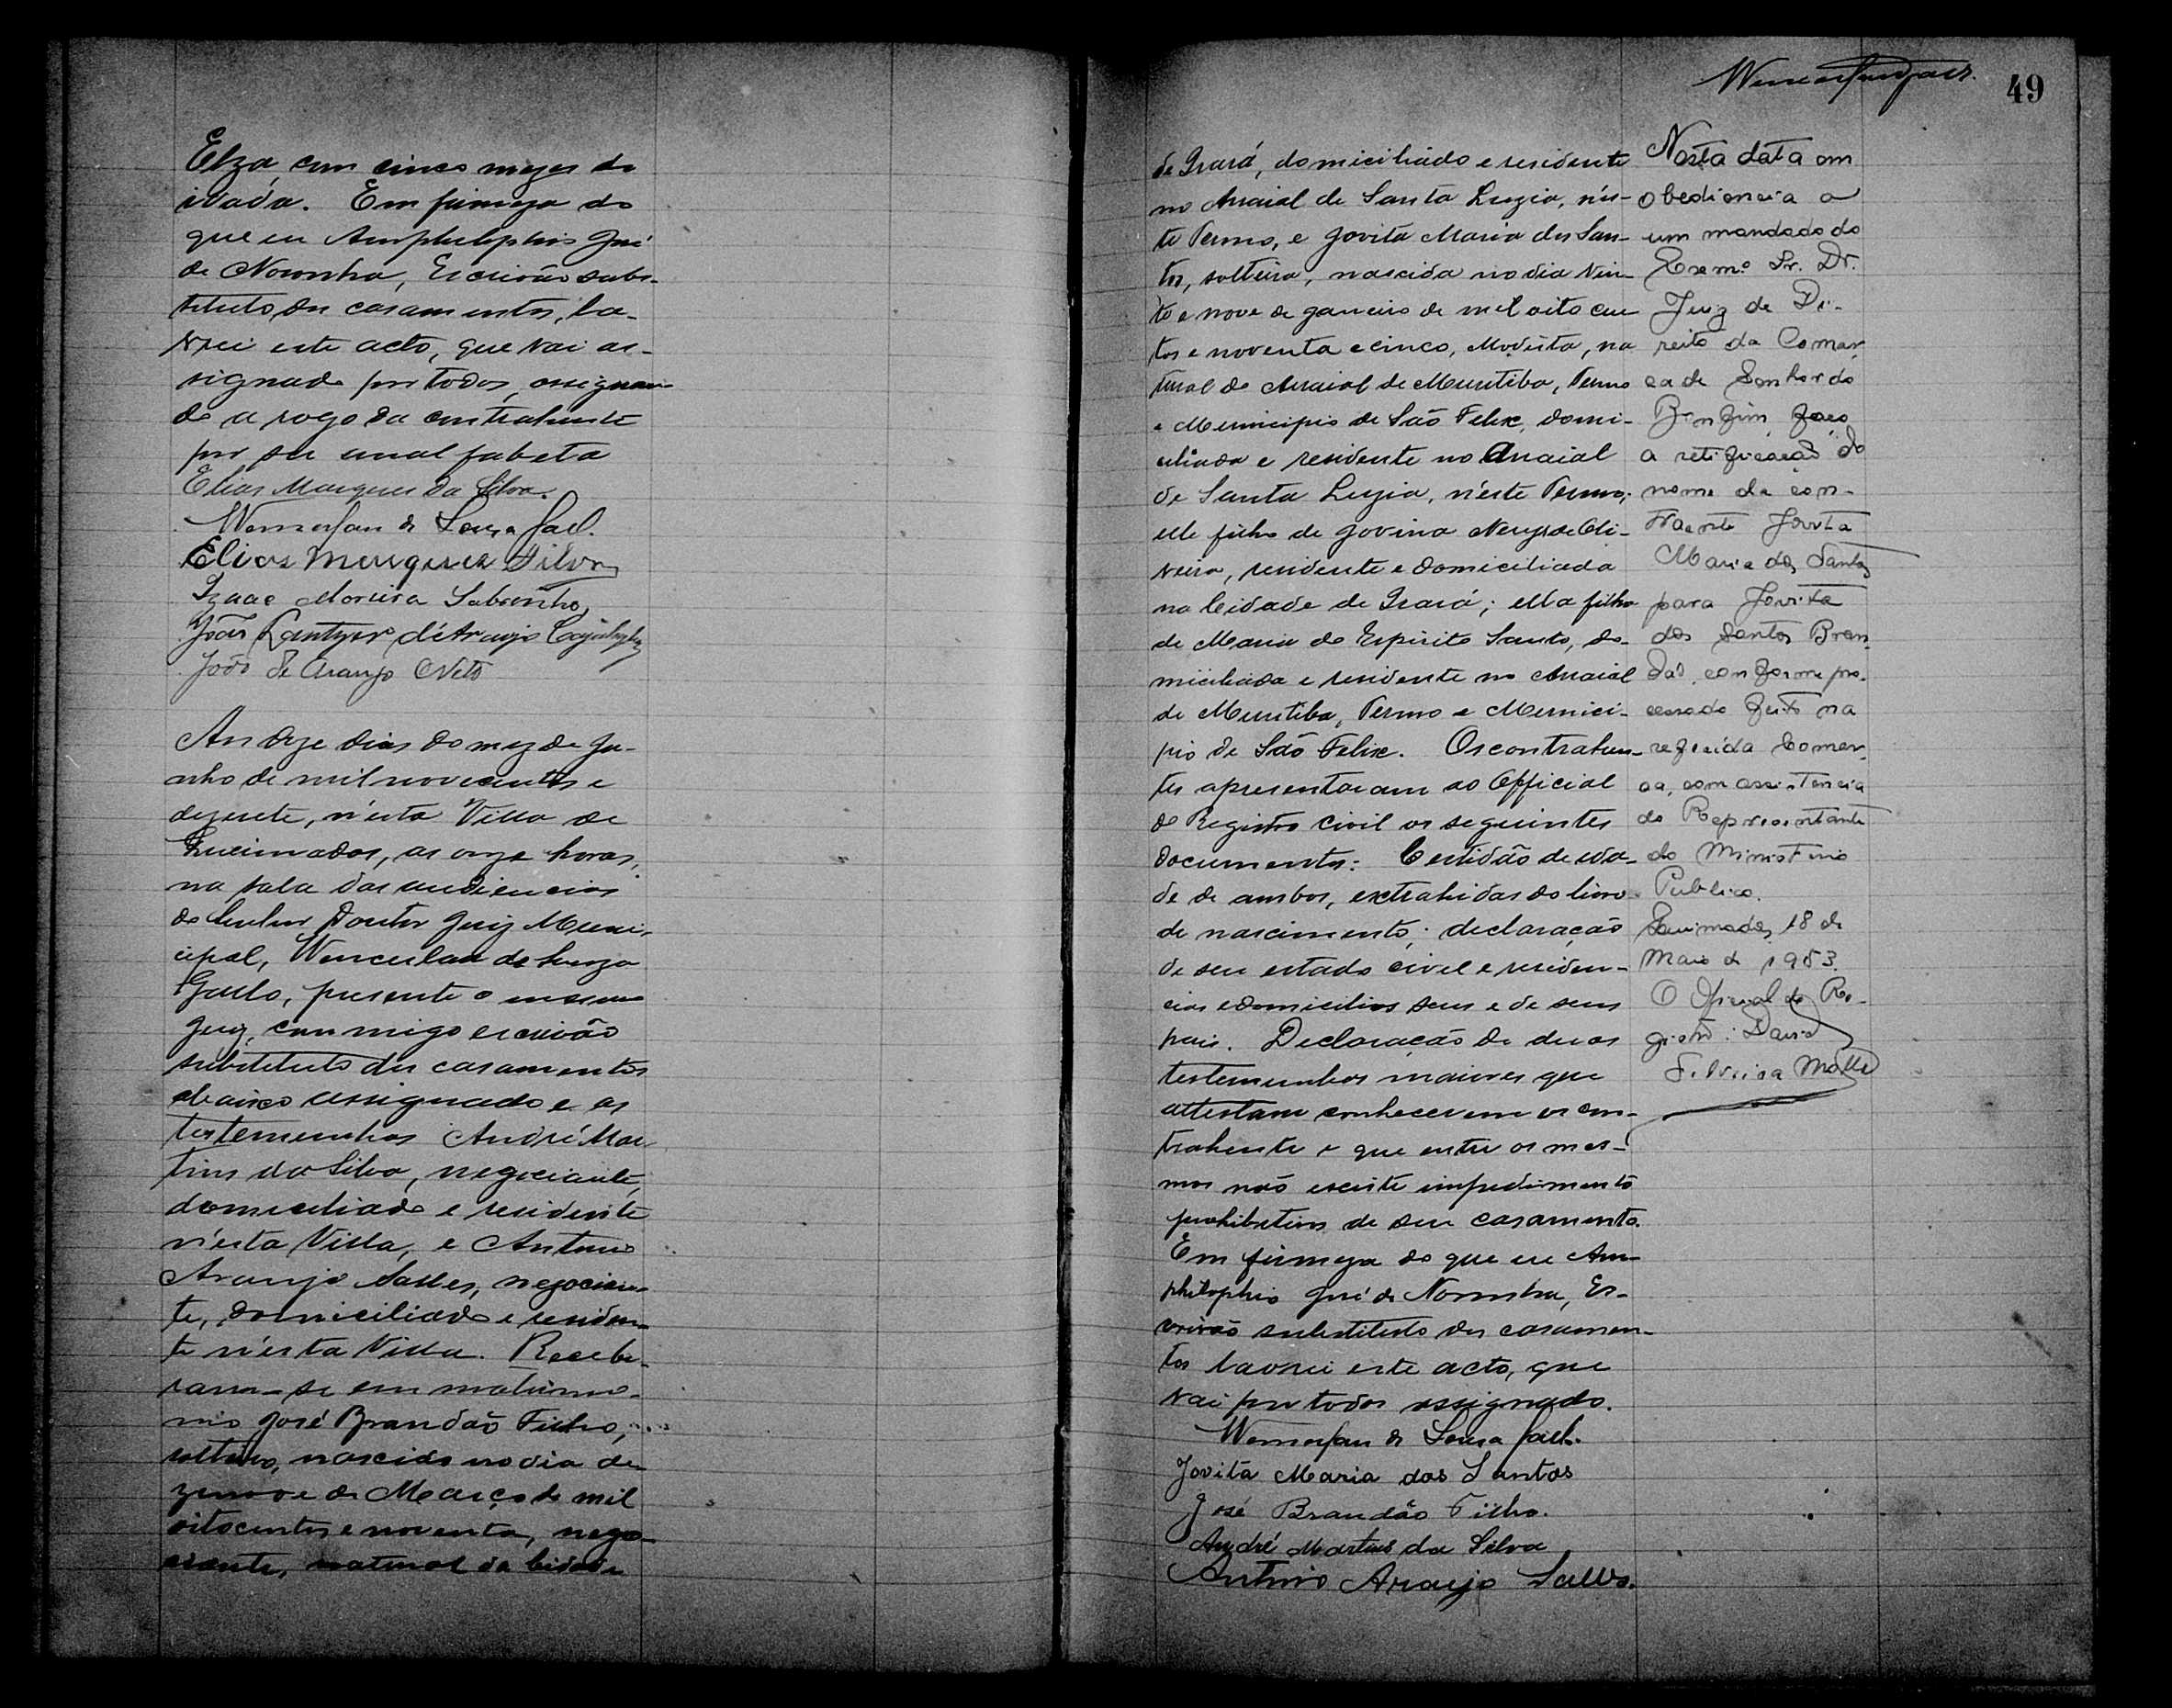 Elza, com cinco mezes de
idade. Em firmeza do
que eu Amphilophio José
de Noronha, Escrivão subs-
tituto dos casamentos, la-
vrei este acto, que vai as-
signado por todos, assignan-
do a rogo da contrahente
por ser analfabeta
Elias Marques da Silva.
Wenceslau de Souza
Elias Marques Silva
Izaac Moreira Sobrinho
João Lantyer d'Araujo
João de Araujo Neto
Aos doze dias do mez de ju-
nho de mil novecentos e
dezesete, n'esta Villa de
Queimados, as onze horas,
na sala das audiencias
do Senhor Doutor Juiz Muni-
cipal, Wenceslau de Souza
presente o mesmo
Juiz, commigo escrivão
substituto dos casamentos
abaixo assignado e as
testemunhas André Mar-
tins da Silva, negociante,
domiciliado e residente
n'esta Villa, e Antonio
Araujo Salles, negocian-
te, domiciliado e residen-
te n'esta Villa. Recebe-
ram-se em matrimo-
nio José Brandão Filho,
solteiro, nascido no dia de-
zenove de Março de mil
oitocentos e noventa, nego-
ciante, natural da Cidade
49
de Irará, domiciliado e residente
no Arraial de Santa Luzia, n'es-
te Termo, e Jovita Maria dos San-
tos, solteira, nascida no dia vin-
te e nove de janeiro de mil oito cen
tos e noventa e cinco, Modista, na
tural do Arraial de Muritiba, Termo
e Municipio de São Felix, domi-
ciliada e residente no Arraial
de Santa Luzia, n'este Termo;
elle filho de Jovina Neves de Oli-
veira, residente e domiciliada
na Cidade de Irará; ella filha
de Maria do Espirito Santo, do-
miciliada e residente no Arraial
de Muritiba, Termo e Munici-
pio de São Felix. Os contrahen-
tes apresentaram ao Official
do Registro civil os seguintes
documentos: Certidão de ida-
de de ambos, extrahidas do livro
de nascimento; declaração
de seu estado civel e residen-
cias e domicilios seus e de seus
pais. Declaração de duas
testemunhas maiores que
attestam conhecerem os con-
trahente e que entre os mes-
mos não existe impedimento
prohibitivo de seu casamento.
Em firmeza do que eu Am-
philophio José de Noronha, Es-
crivão substituto dos casamen-
tos lavrei este acto, que
vai por todos assignado.
Wenceslau de Souza
Jovita Maria dos Santos
José Brandão Filho.
André Martins da Silva
Antonio Araujo Salles.
Nesta data em
obediencia a
um mandado do
Exmº Sr. Dr.
Juiz de Di-
reito da Comar
ca de Senhor do
Bonfim, faço
a retificação do
nome da con-
traente Jovita
Maria dos Santos
para Jovita
dos Santos Bran-
dão, conforme pro-
cessado feito na
referida Comar-
ca, com assistencia
do Representante
do Ministerio
Publico.
Queimadas, 18 de
Maio de 1953.
O Oficial do Re-
gistro: David
Silveira Motta